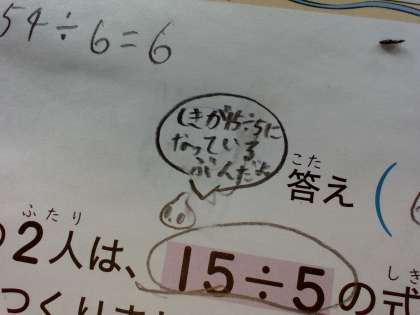 54÷6=6
しきが15÷5に
なっている
ぶんだよ
答え(
こた
の2人は、15÷5の式
ふたり
しき
つくりました